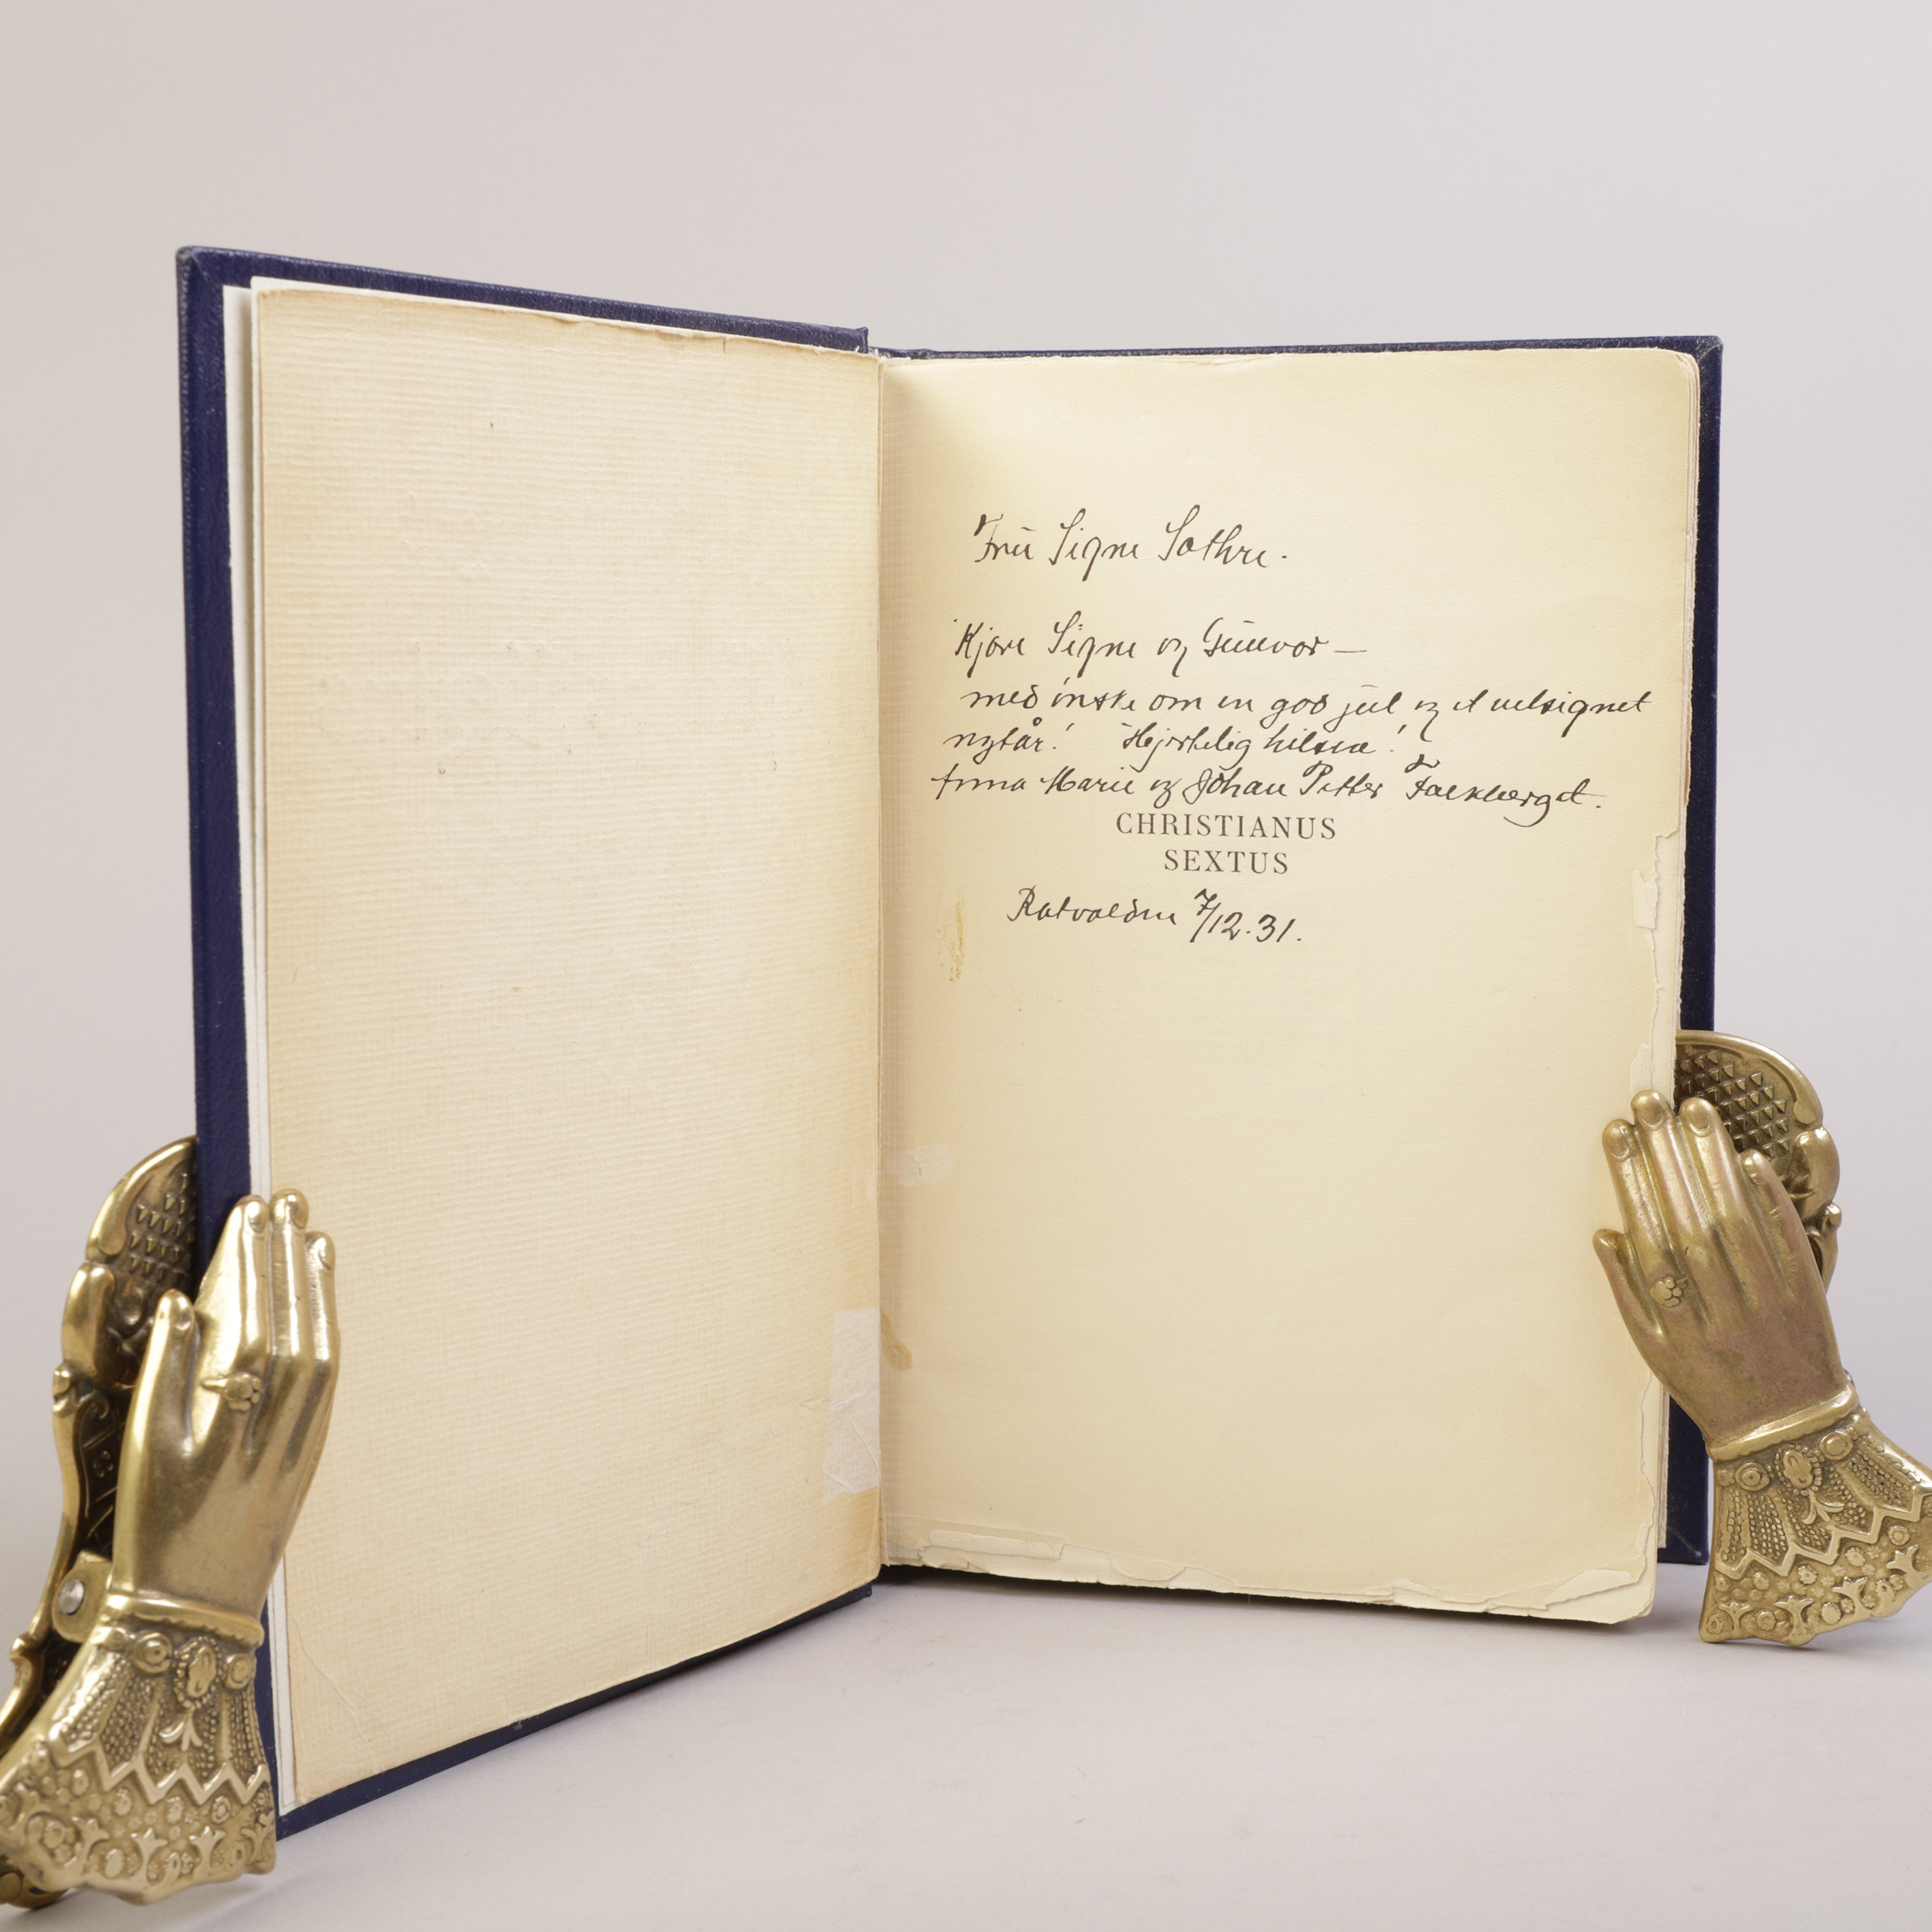 Fru Signe Sathre.
Kjære Signe og Gunvor —
med ønske om en god jul og et velsignet
nytår! Hjertelig hilsen!
Anna Marie og Johan Petter Falkberget.
CHRISTIANUS
SEXTUS
Ratvolden 7/12.31.